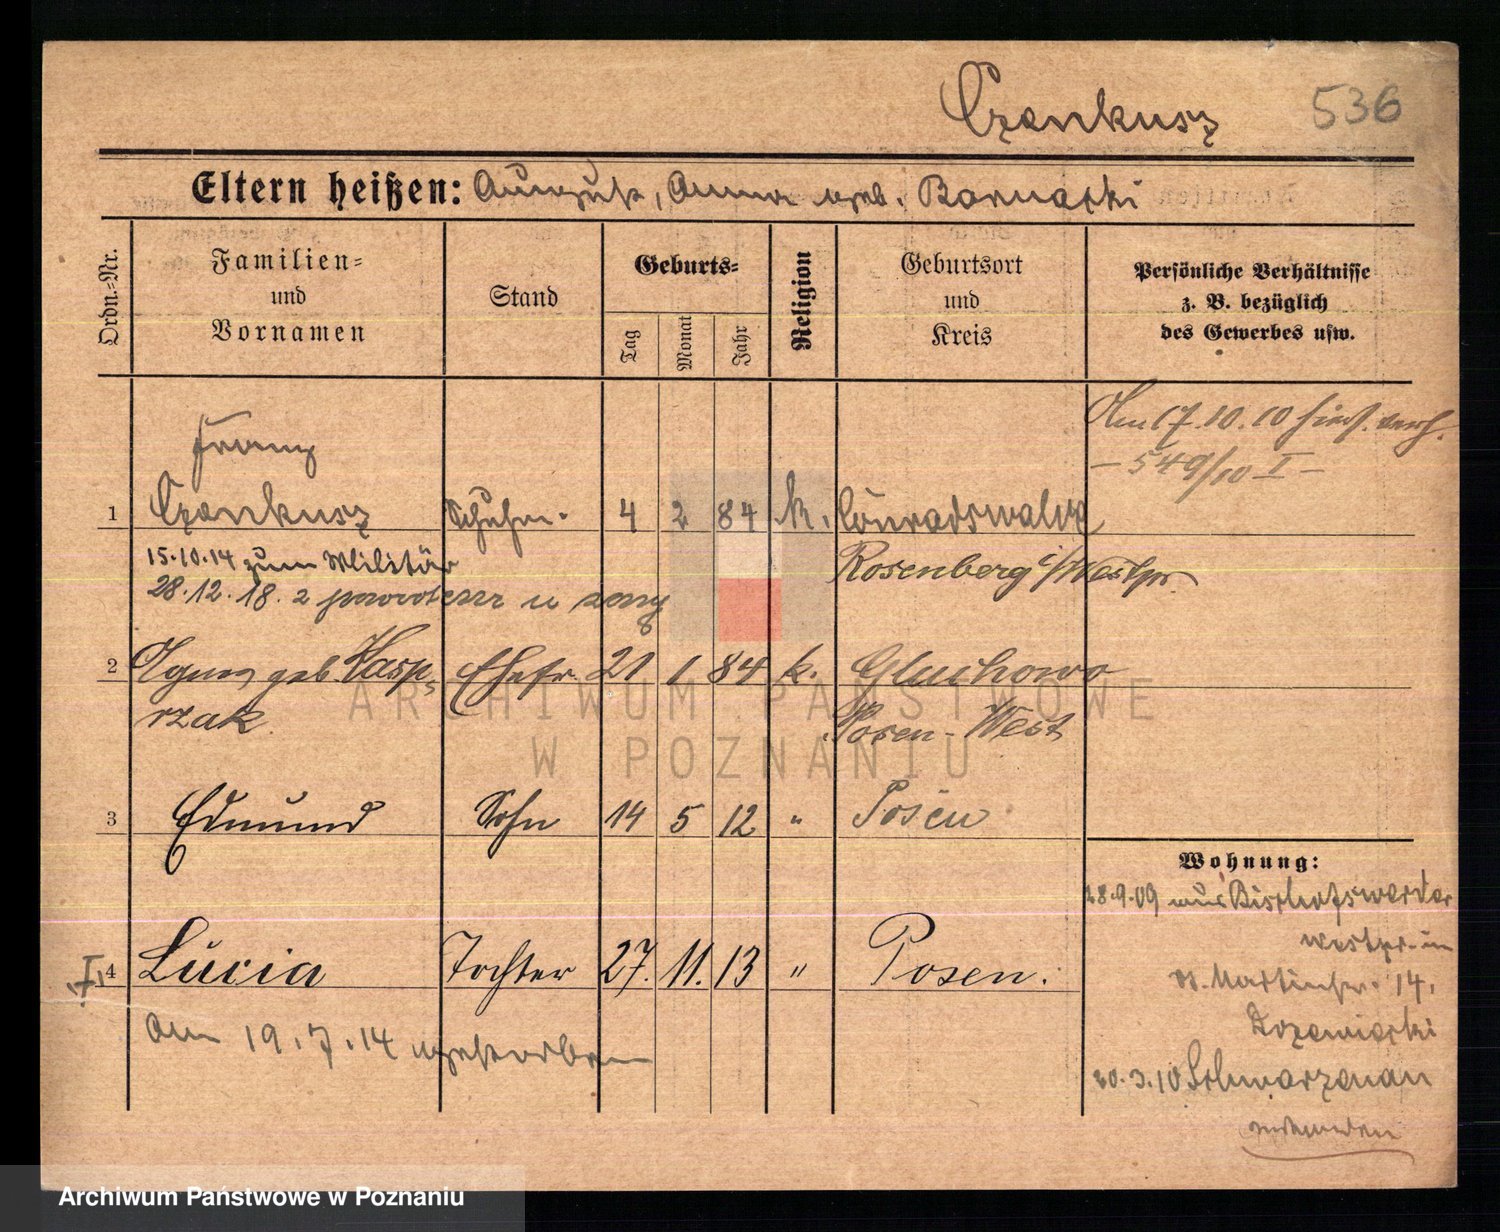 Czenkusz 536
Eltern heißen: August, Anna geb. Barnatzki
Ordn.=Nr.
Familien=
und
Vornamen
Stand
Geburts=
Tag
Monat
Jahr
Religion
Geburtsort
und
Kreis
Persönliche Verhältnisse
z. B. bezüglich
des Gewerbes usw.
Am 17.10.10 hier verh.
- 549/10 I -
Franz
1 Czenkusz Schuhm. 4 2 84 k. Conradswalde
15.10.14 zum Militär Rosenberg i/Westpr
28.12.18. z powrotem u żony
2 Agnes geb Kasp= Ehefr. 21 1 84 k. Gluchowo
rzak Posen-West
3 Edmund Sohn 14 5 12 " Posen
4 Lucia Tochter 27. 11. 13 " Posen.
Am 19.7.14 gestorben
Wohnung:
28.9.09 aus Bischofswerder
Westpr. in
St. Martinstr. 14,
20.3.10 Schwarzenau
ARCHIWUM PAŃSTWOWE
W POZNANIU
Archiwum Państwowe w Poznaniu